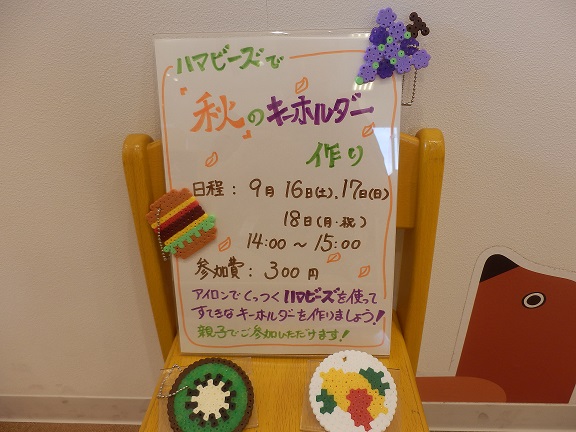 ハマビーズで
『秋』のキーホルダー
作り
日程：9月16日(土).17日(日)
18日(月・祝)
14:00～15:00
参加費：300円
アイロンでくっつくハマビーズを使って
すてきなキーホルダーを作りましょう！
親子でご参加いただけます！